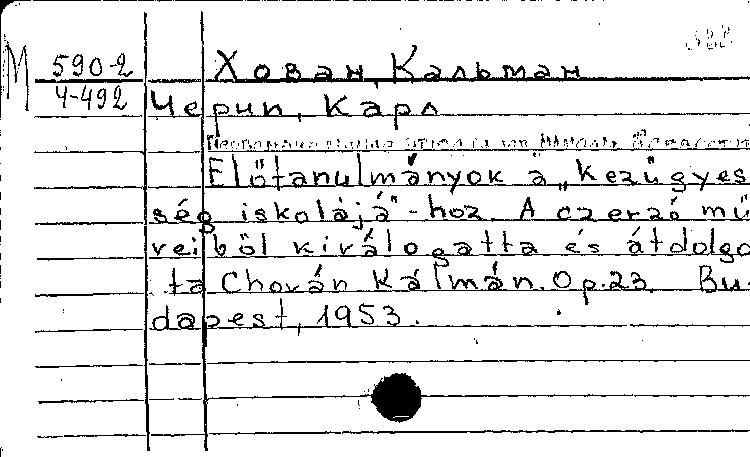 М 590-2 Хован, Кальман
4-492 Черни, Карл
Előtanulmányok a „Kezűgyes
ség iskolájá"-hoz. A czerző mű
veiből kiválogatta és átdolgo
ta Chován Kálmán. Op.23. Bu-
dapest, 1953.